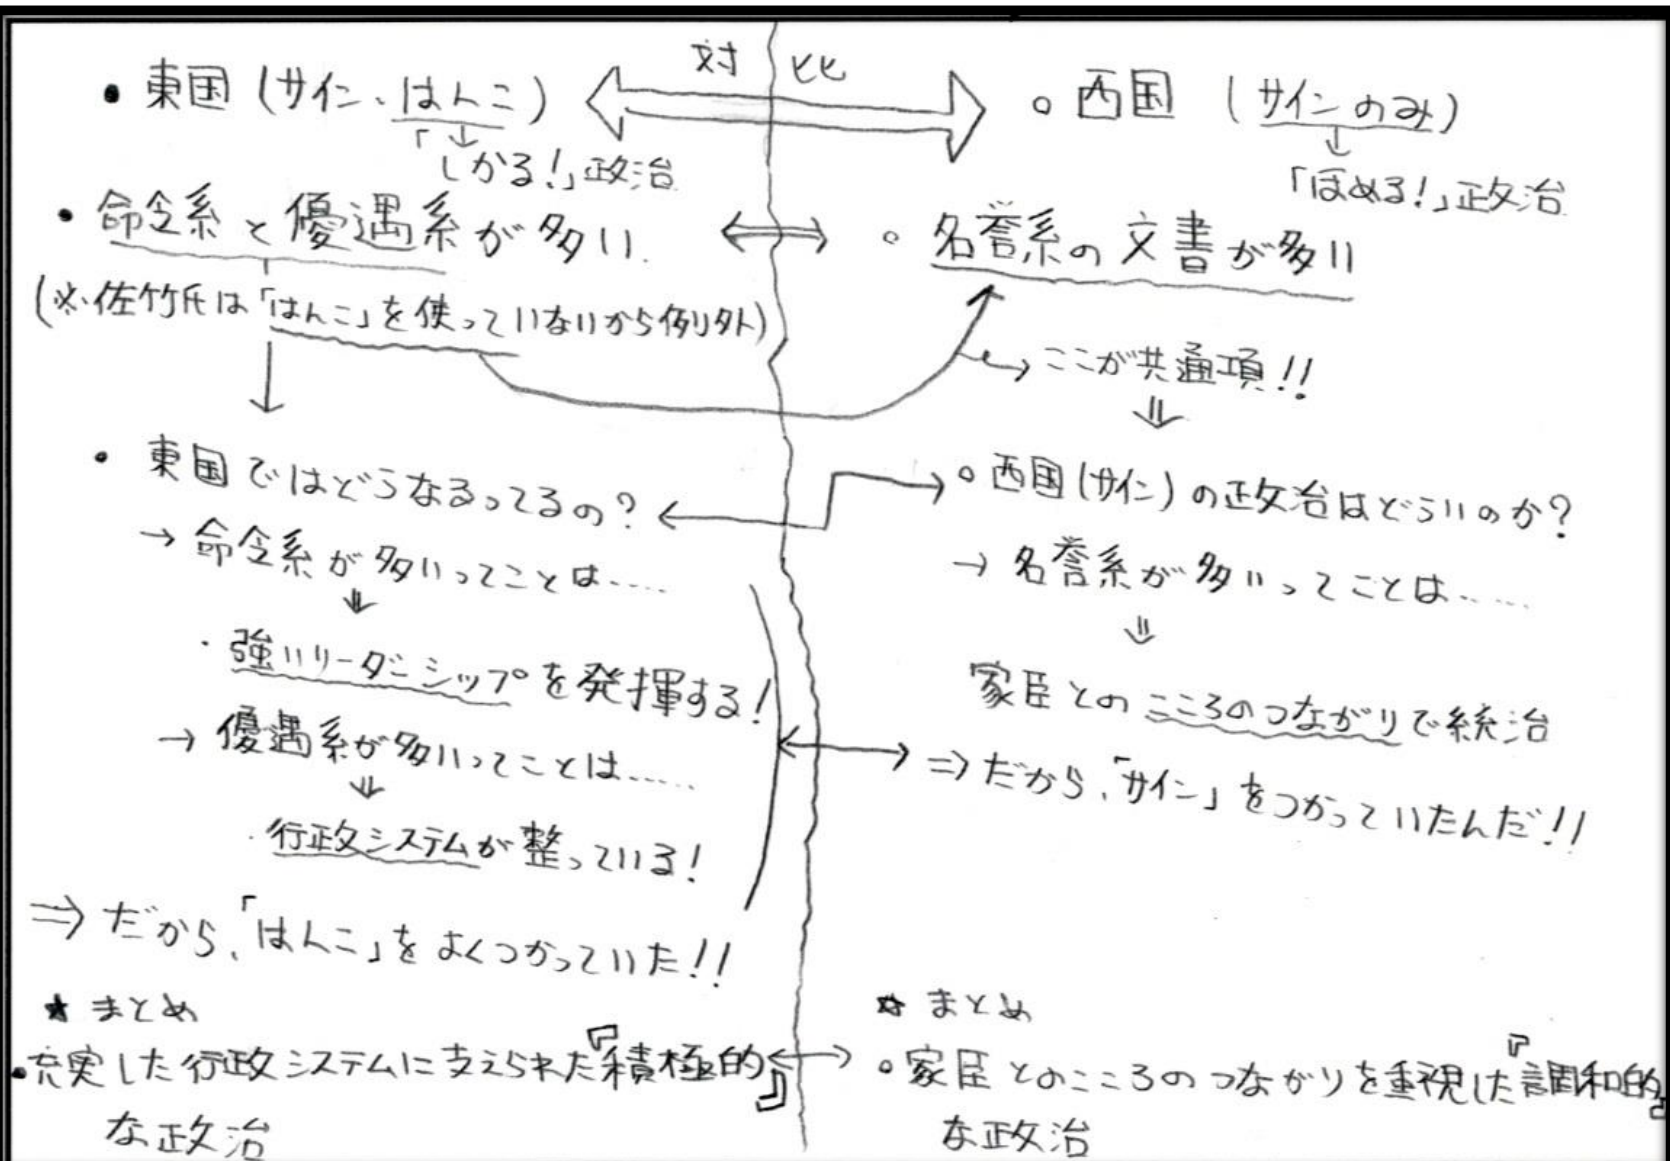 対比
・東国(サイン、はんこ)
↓
「しかる!」政治
・命令系と優遇系が多い.
(※佐竹氏は「はんこ」を使っていないから例外)
・東国ではどうなるってるの?
→命令系が多いってことは……
⇓
・強いリーダーシップを発揮する!
→優遇系が多いってことは……
⇓
・行政システムが整っている!
⇒だから、「はんこ」をよくつかっていた!!
★まとめ
・充実した行政システムに支えられた『積極的』
な政治
○西国(サインのみ)
↓
「ほめる!」政治
○名誉系の文書が多い
→ここが共通項!!
⇓
○西国(サイン)の政治はどういのか?
→名誉系が多いってことは……
⇓
家臣とのこころのつながりで統治
⇒だから、「サイン」をつかっていたんだ!!
☆まとめ
○家臣とのこころのつながりを重視した『調和的』
な政治